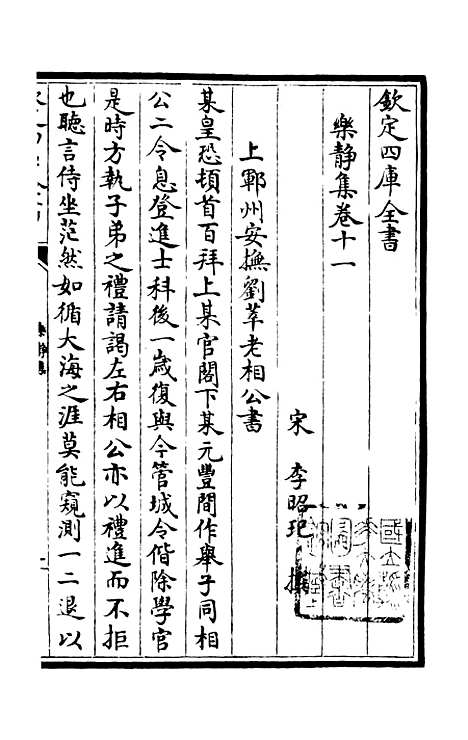 欽定四庫全書
樂静集卷十一
宋 李昭玘 撰
上鄆州安撫劉莘老相公書
某皇恐頓首百拜上某官閣下某元豐間作舉子同相
公二令息登進士科後一歲復與今管城令偕除學官
是時方執子弟之禮請謁左右相公亦以禮進而不拒
也聽言侍坐茫然如循大海之涯莫能窺測一二退以